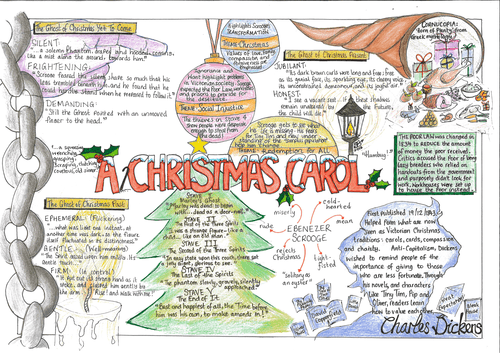 The Ghost of Christmas Yet To Come
SILENT
"... a solemn Phantom, draped and hooded, coming,
like a mist along the ground, towards him."
FRIGHTENING
"Scrooge feared the silent shape so much that his
legs trembled beneath him, and he found that he
could hardly stand when he prepared to follow it."
DEMANDING
"Still the Ghost pointed with an unmoved
finger to the head."
Highlights Scrooge's
TRANSFORMATION
THEME: Christmas
Values of love,
compassion and
Ignorance and
Want highlight problems
in Victorian society.
THEME: Social Injustice
The thieves in Stave 4
show people were desperate
enough to steal from
the dead
The Ghost of Christmas Present
JUBILANT:
"Its dark brown curls were long and free: free
as its genial face, its sparkling eye, its cheery voice,
its unconstrained demeanour, and its joyful air"
HONEST:
"I see a vacant seat... if these shadows
remain unaltered by the Future,
the child will die"
CORNUCOPIA:
'horn of Plenty' from
Greek mythology
Scrooge gets to see what
his life is missing. He fears
for Tiny Tim, and may
THEME: Redemption for All
"Humbug"
THE POOR LAW was changed in
1834 to reduce the amount
of money the poor received.
Critics accused the Poor of being
lazy breeders who relied on
handouts from the government
and purposely didn't look
for work. Workhouses were set up
to house the Poor instead.
"... a squeezing,
wrenching,
grasping,
scraping, clutching,
covetous, old sinner"
A CHRISTMAS CAROL
The Ghost of Christmas Past
EPHEMERAL (flickering)
"... what was light one instant, at
another time was dark, so the figure
itself fluctuated in its distinctness"
GENTLE (Well-meaning)
"
FIRM (in control)
"It put out its strong hand as it
spoke, and clasped him gently by
the arm. 'Rise! and walk with me!'"
STAVE I
Marley's Ghost
"Marley was dead: to begin
with... dead as a door-nail"
STAVE II
The First of the Three Spirits
"It was a strange figure - like a
child... like an old man"
STAVE III
The Second of the Three Spirits
"In easy state upon this couch, there sat
a jolly Giant, glorious to see"
STAVE IV
The Last of the Spirits
"The phantom slowly, gravely, silently
approached"
STAVE V
The End of It
"Best and happiest of all, the Time before
him was his own, to make amends in!"
miserly
cold-hearted
rude
mean
EBENEZER
SCROOGE
rejects
Christmas
tight-fisted
"solitary as
an oyster"
First published 19/12/1843
Helped form what are now
seen as Victorian Christmas
traditions: carols, cards, compassion
and charity. Anti-Capitalism, Dickens
wished to remind people of the
importance of giving to those
who are less fortunate. Through
his novels, and characters
like Tiny Tim, Pip and
Oliver, readers learn
how to value each other.
Great
Expectations
Bleak
House
David
Copperfield
Charles Dickens